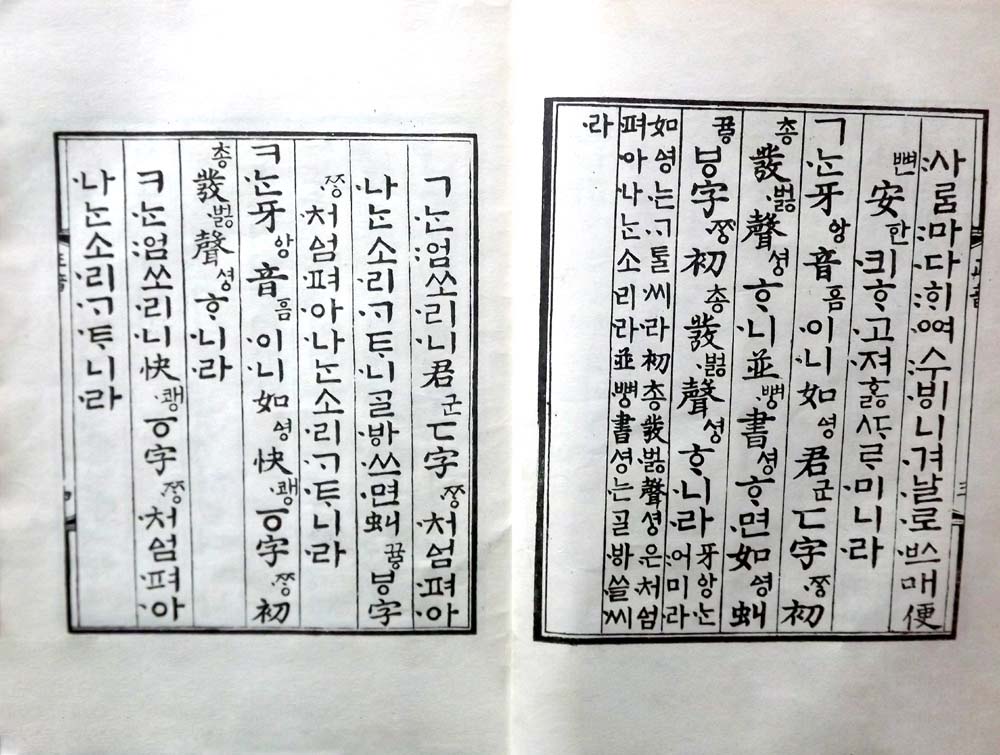 사ᄅᆞᆷ마다ᄒᆡᅇᅧ수ᄫᅵ니겨날로ᄡᅳ매便
뼌安한킈ᄒᆞ고져ᄒᆞᇙᄯᆞᄅᆞ미니라
ㄱᄂᆞᆫ牙ᅌᅡᆼ音ᅙᅳᆷ이니如ᅀᅧᆼ君군ㄷ字ᄍᆞᆼ初
총發버ᇙ聲셩ᄒᆞ니並뼝書셩ᄒᆞ면如ᅀᅧᆼ虯
뀨ᇢㅸ字ᄍᆞᆼ初총發버ᇙ聲셩ᄒᆞ니라
牙ᅌᅡᆼᄂᆞᆫ
어미라
如ᅀᅧᆼ는ᄀᆞᄐᆞᆯ씨라初총發버ᇙ聲셩은처ᅀᅥᆷ
펴아나ᄂᆞᆫ소리라並뼝書셩는ᄀᆞᆯᄫᅡ쓸씨
라
正音
三
ㄱᄂᆞᆫ엄쏘리니君군ㄷ字ᄍᆞᆼ처ᅀᅥᆷ펴아
나ᄂᆞᆫ소리ᄀᆞᄐᆞ니ᄀᆞᆯᄫᅡ쓰면虯뀨ᇢㅸ字
ᄍᆞᆼ처ᅀᅥᆷ펴아나ᄂᆞᆫ소리ᄀᆞᄐᆞ니라
ㅋᄂᆞᆫ牙ᅌᅡᆼ音ᅙᅳᆷ이니如ᅀᅧᆼ快쾡ㆆ字ᄍᆞᆼ初
총發버ᇙ聲셩ᄒᆞ니라
ㅋᄂᆞᆫ엄쏘리니快쾡ㆆ字ᄍᆞᆼ처ᅀᅥᆷ펴아
나ᄂᆞᆫ소리ᄀᆞᄐᆞ니라